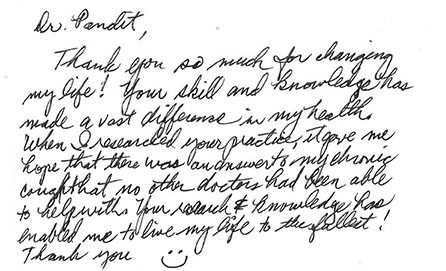 Dr. Pandit,
Thank you so much for changing
my life! Your skill and knowledge has
made a vast difference in my health.
When I researched your practice, it gave me
hope that there was an answer to my chronic
cough that no other doctors had been able
to help with. Your research & knowledge has
enabled me to live my life to the fullest!
Thank you